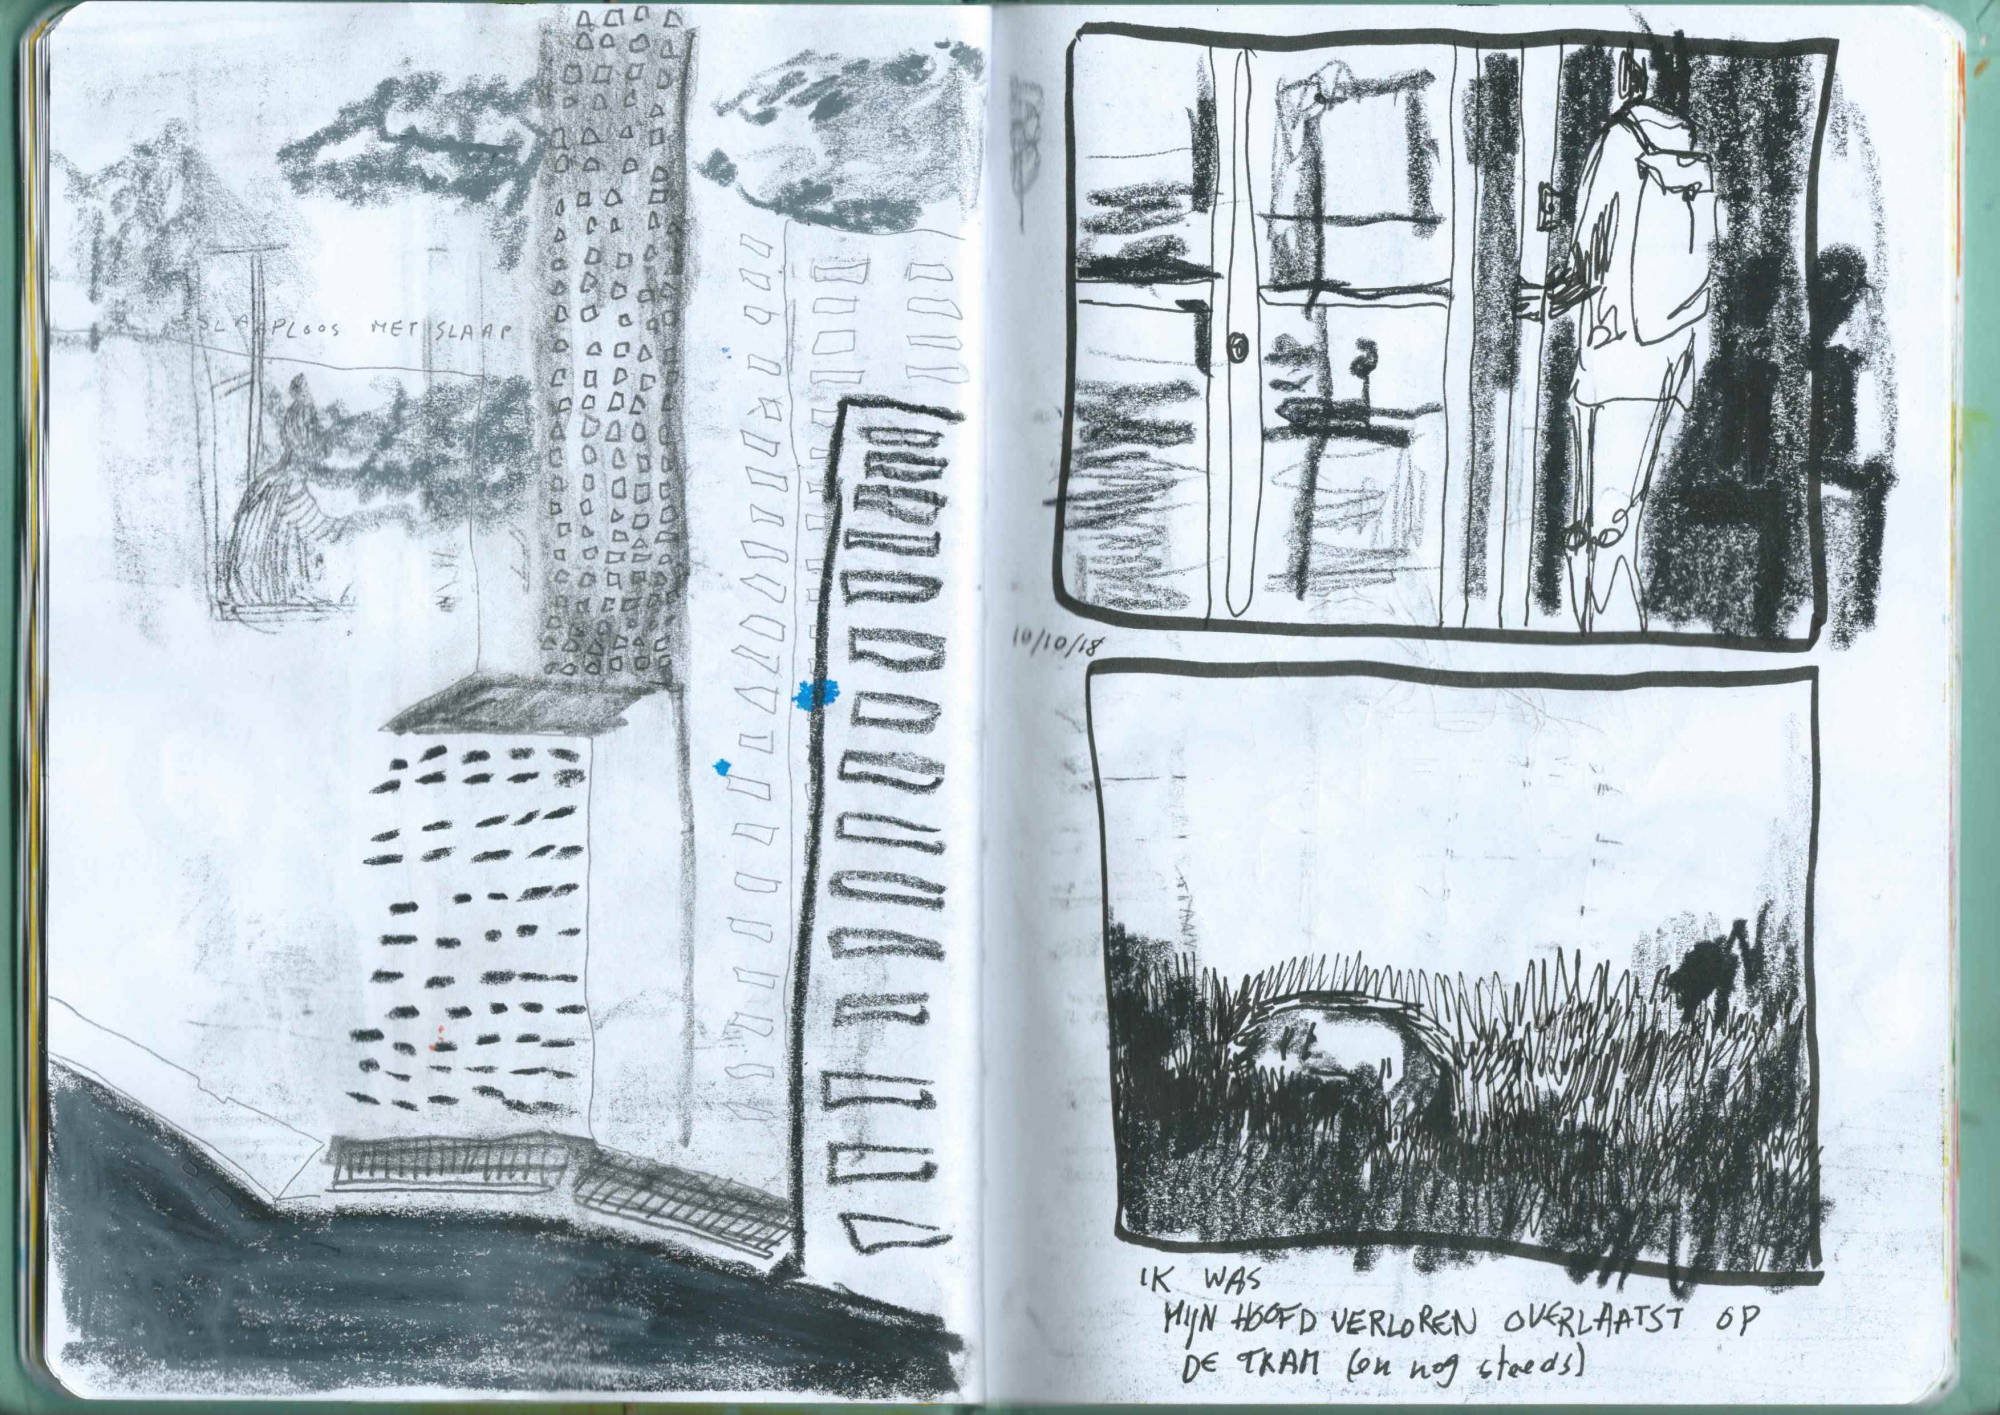 SLAAPLOOS MET SLAAP
10/10/18
IK WAS
MIJN HOOFD VERLOREN OVERLAATST OP
DE TRAM (en nog steeds)